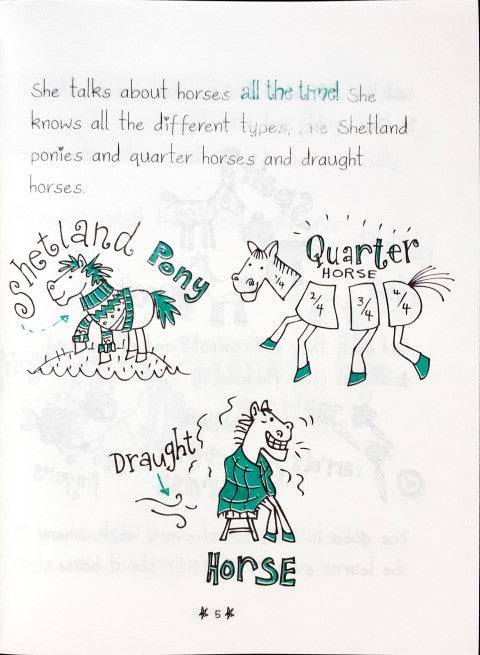 She talks about horses all the time! She
knows all the different types, he Shetland
ponies and quarter horses and draught
horses.
Shetland Pony
Quarter
HORSE
1/4
2/4
3/4
4/4
Draught
HORSE
5